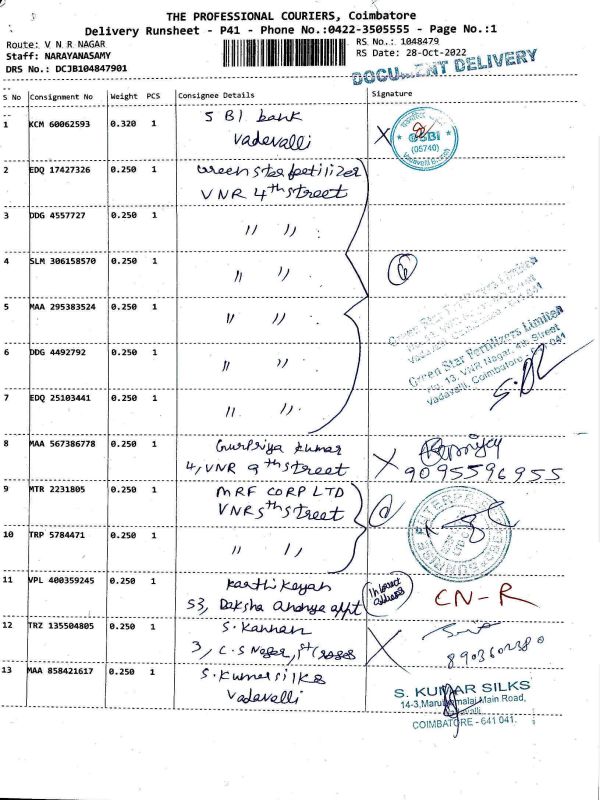 THE PROFESSIONAL COURIERS, Coimbatore
Delivery Runsheet - P41 - Phone No.:0422-3505555 - Page No.:1
Route: V N R NAGAR
RS No.: 1048479
Staff: NARAYANASAMY
RS Date: 28-Oct-2022
DRS No.: DCJB104847901
DOCUMENT DELIVERY
S No Consignment No Weight PCS Consignee Details Signature
1 KCM 60062593 0.320 1 SBI bank
Vadavalli
SBI
(05740)
Vadavalli Branch
2 EDQ 17427326 0.250 1 Green star fertilizer
VNR 4th street
3 DDG 4557727 0.250 1 " "
4 SLM 306158570 0.250 1 " "
6
5 MAA 295383524 0.250 1 " "
Green Star Fertilizers Limited
No. 13, VNR Nagar, 4th Street
Vadavalli, Coimbatore - 641 041
6 DDG 4492792 0.250 1 " "
Green Star Fertilizers Limited
No. 13, VNR Nagar, 4th Street
Vadavalli, Coimbatore - 641 041
7 EDQ 25103441 0.250 1 " "
8 MAA 567386778 0.250 1 Gurupriya Kumar
4, VNR 9th street
9095596955
9 MTR 2231805 0.250 1 MRF CORP LTD
VNR 5th street
10 TRP 5784471 0.250 1 " "
11 VPL 400359245 0.250 1 Karthikeyan
53, Daksha Ananya appt
Incorrect address
CN-R
12 TRZ 135504805 0.250 1 S. Kannan
3, C.S Nagar, 1st cross
8903602380
13 MAA 858421617 0.250 1 S. Kumar silks
Vadavalli
S. KUMAR SILKS
14-3, Maruthamalai Main Road,
Vadavalli
COIMBATORE - 641 041.